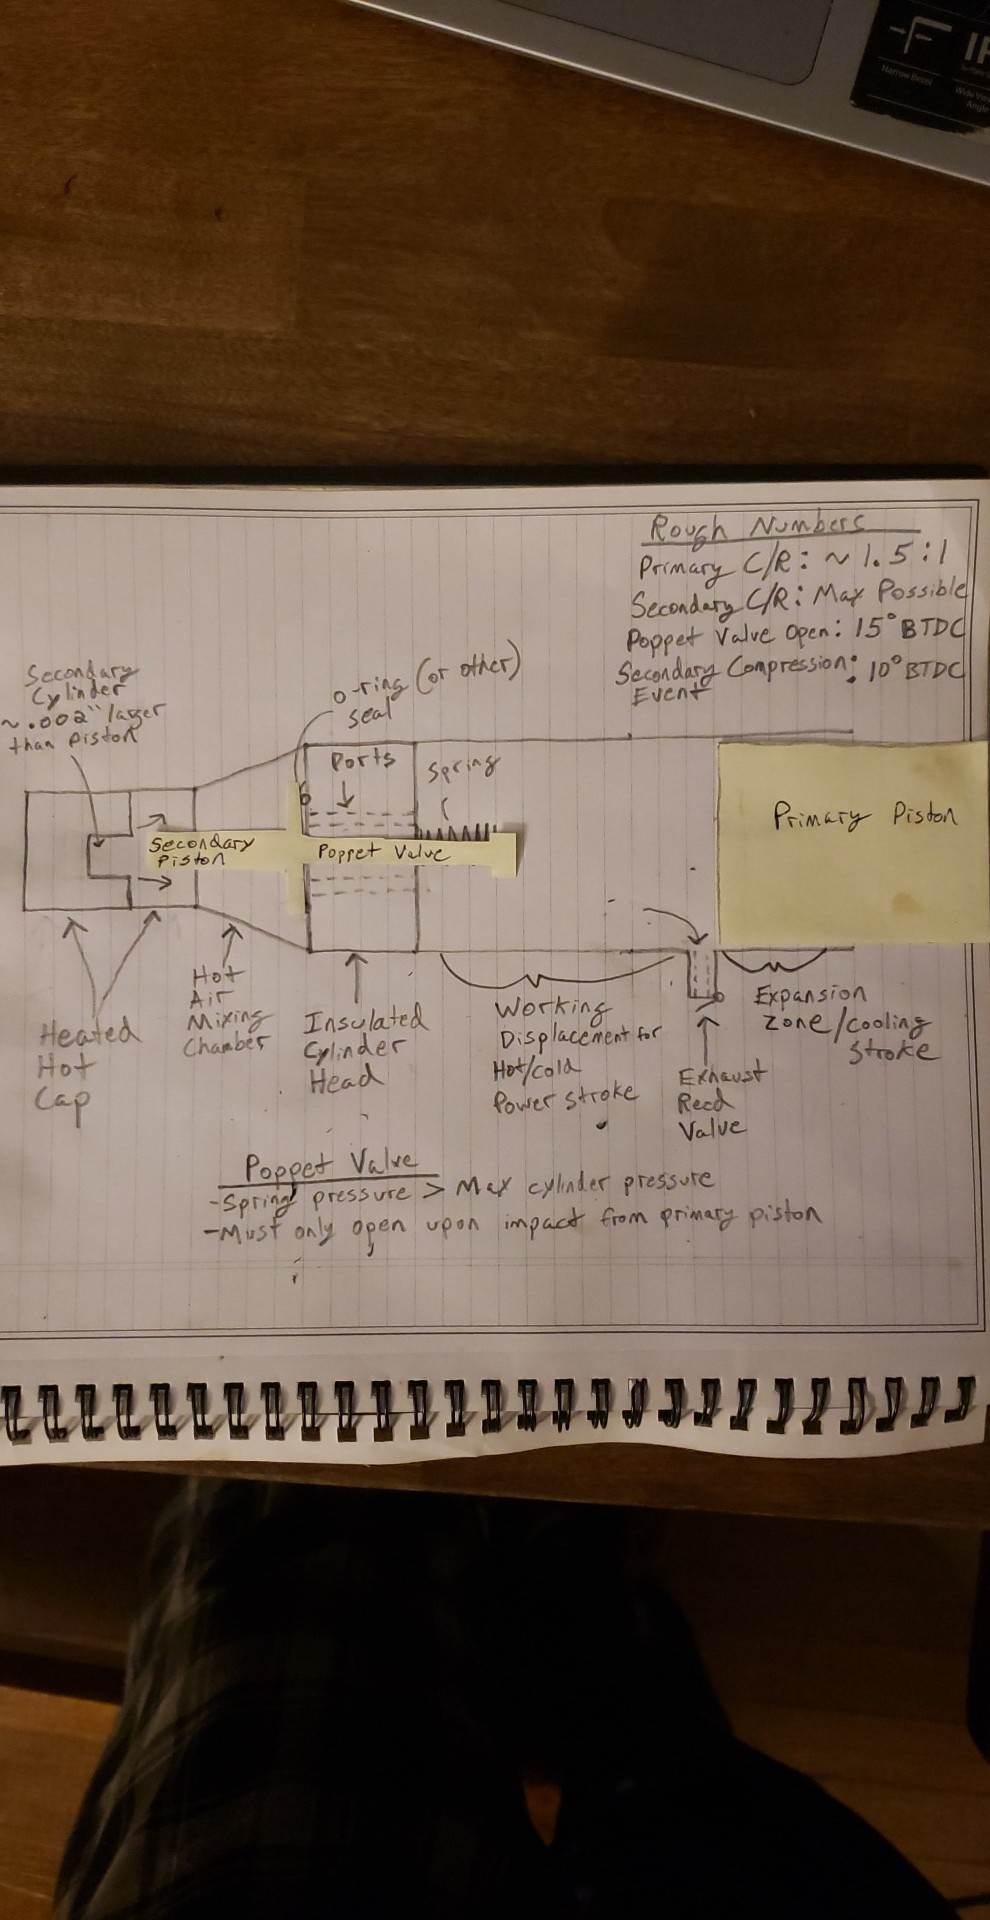 IP
Narrow Bezel
Rough Numbers
Primary C/R: ~ 1.5:1
Secondary C/R: Max Possible
Poppet Valve Open: 15° BTDC
Secondary Compression: 10° BTDC
Event
Secondary
Cylinder
~.002" larger
than piston
o-ring (or other)
seal
Ports
Spring
Secondary
Piston
Poppet Valve
Primary Piston
Heated
Hot
Cap
Hot
Air
Mixing
Chamber
Insulated
Cylinder
Head
Working
Displacement for
Hot/cold
Power stroke
Exhaust
Reed
Valve
Expansion
Zone/cooling
Stroke
Poppet Valve
-Spring pressure > Max cylinder pressure
-Must only open upon impact from primary piston